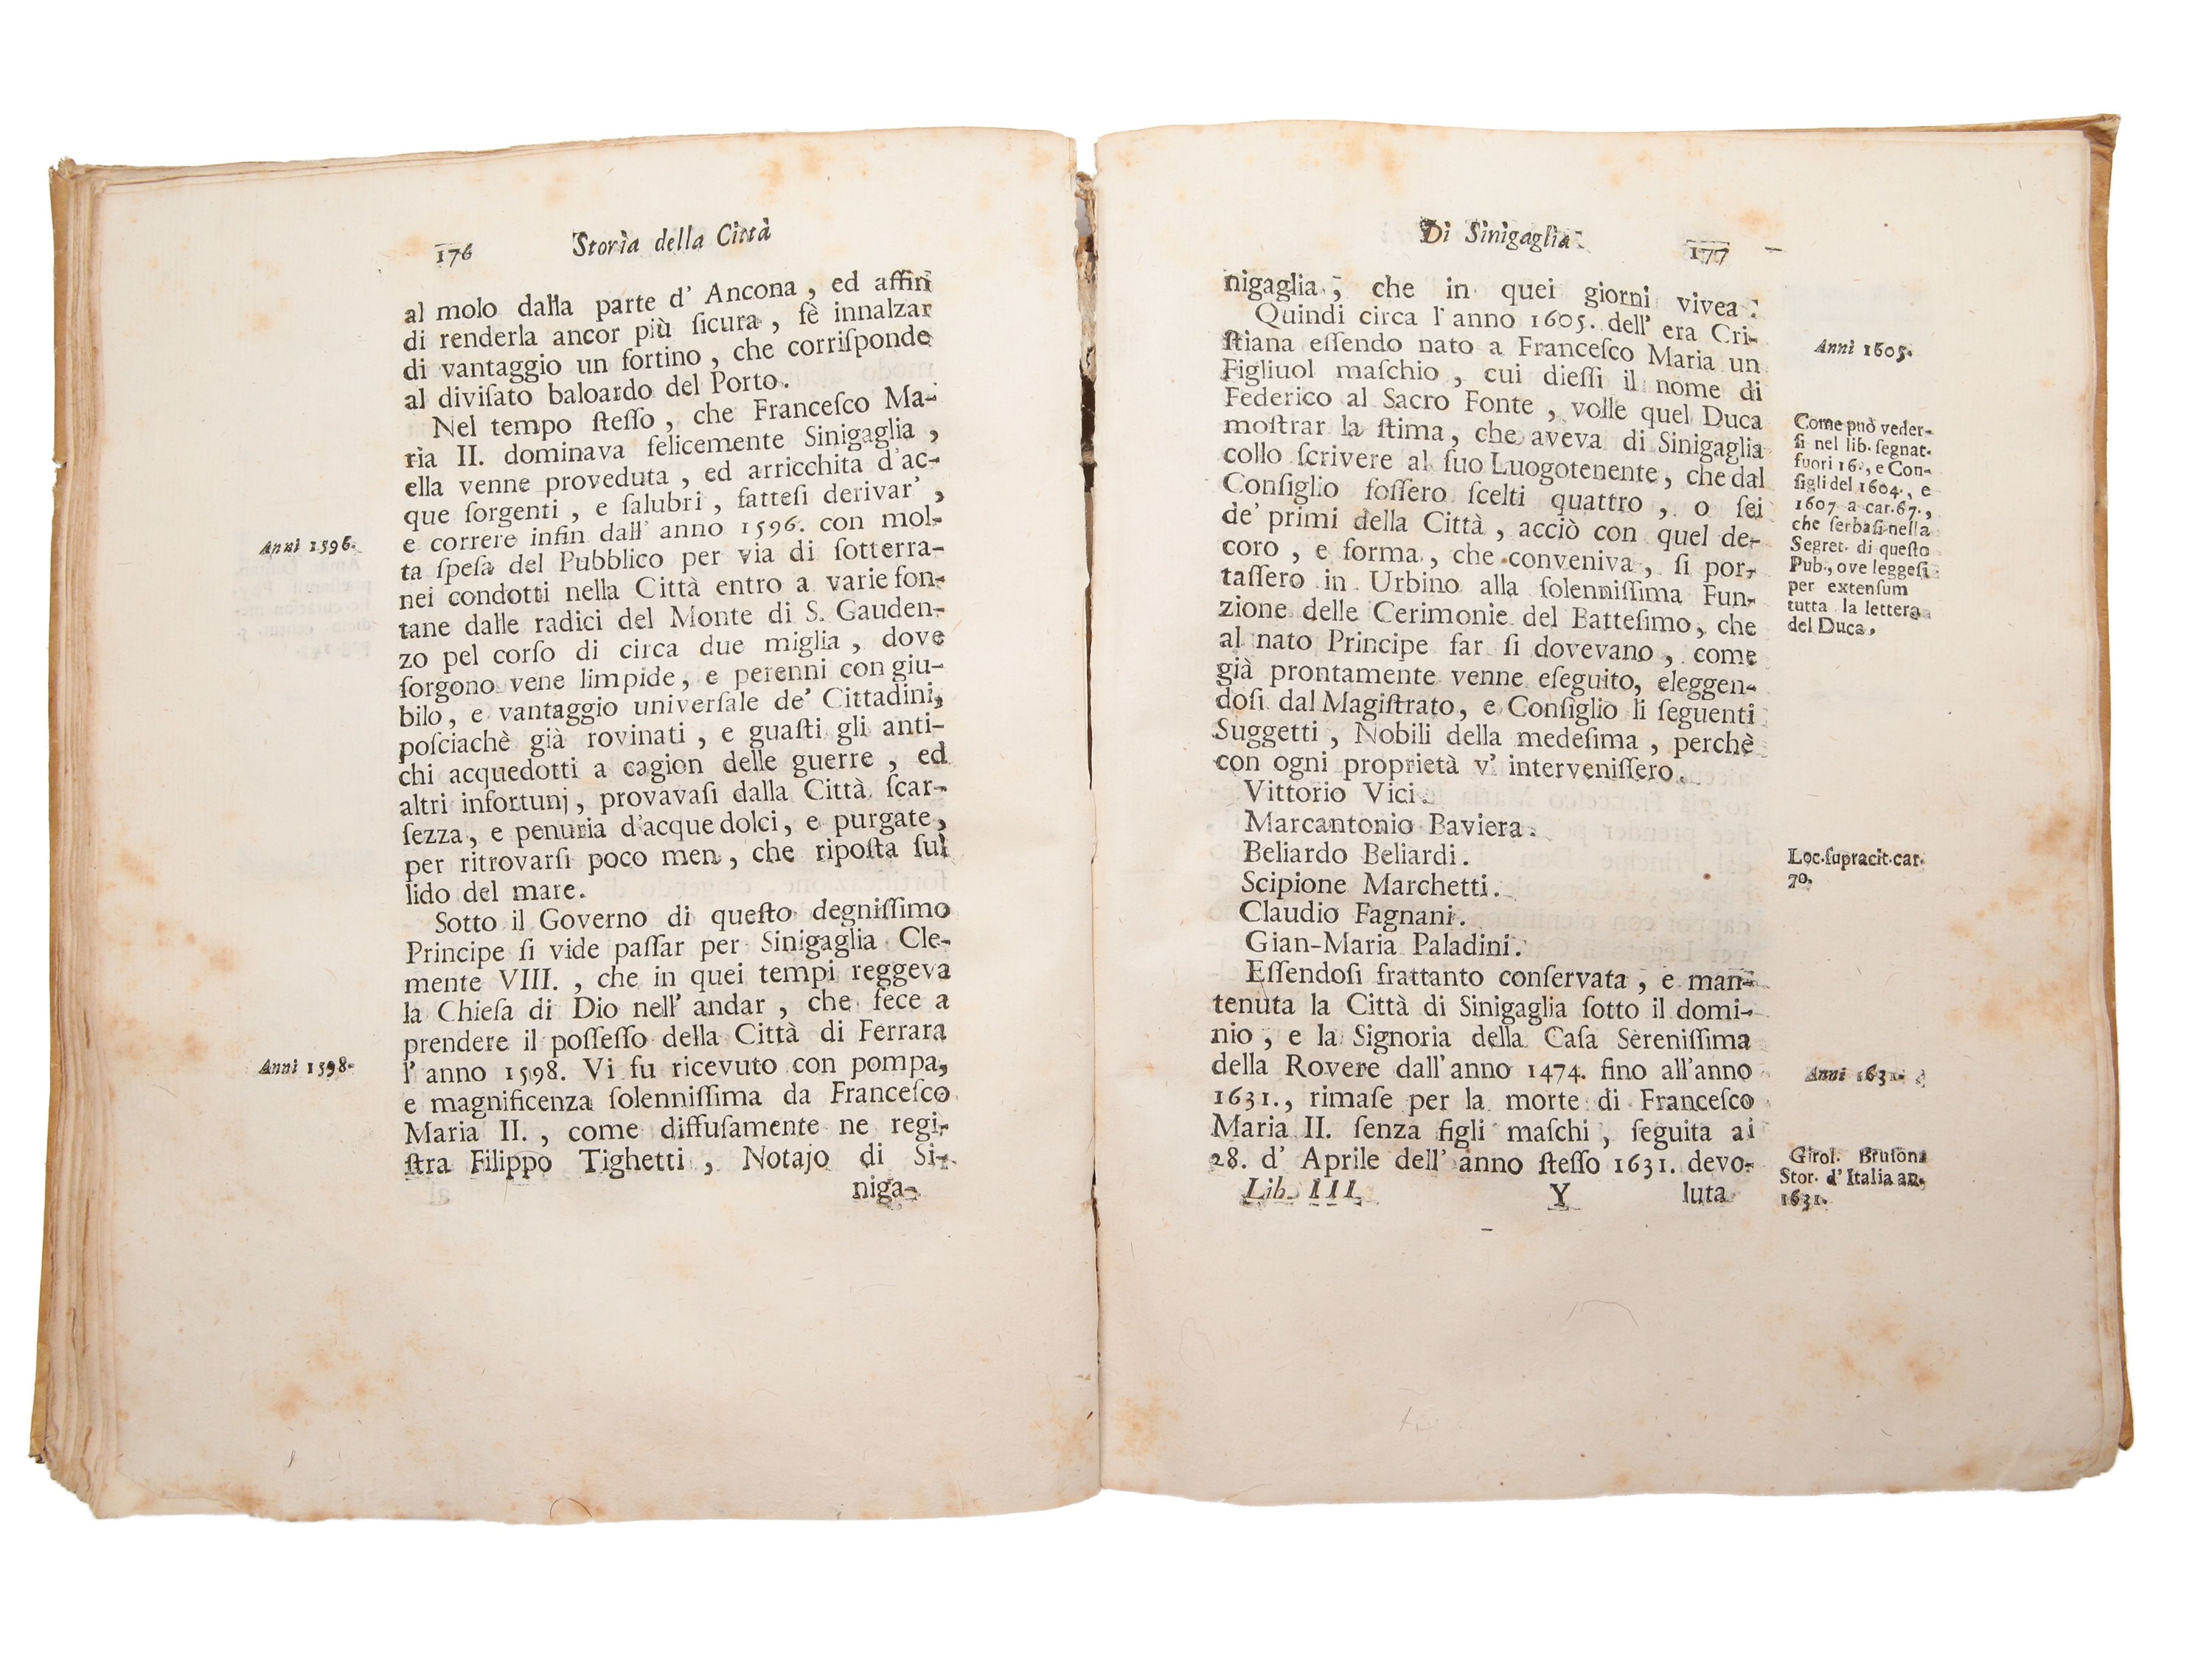 176 Storia della Città
al molo dalla parte d' Ancona, ed affin
di renderla ancor più ſicura, fè innalzar
di vantaggio un fortino, che corriſponde
al diviſato baloardo del Porto.
Nel tempo ſteſſo, che Franceſco Ma-
ria II. dominava felicemente Sinigaglia,
ella venne proveduta, ed arricchita d'ac-
que ſorgenti, e ſalubri, fatteſi derivar',
e correre infin dall' anno 1596. con mol-
ta ſpeſa del Pubblico per via di ſotterra-
nei condotti nella Città entro a varie fon-
tane dalle radici del Monte di S. Gauden-
zo pel corſo di circa due miglia, dove
ſorgono vene limpide, e perenni con giu-
bilo, e vantaggio univerſale de' Cittadini,
poſciachè già rovinati, e guaſti gli anti-
chi acquedotti a cagion delle guerre, ed
altri infortunj, provavaſi dalla Città ſcar-
ſezza, e penuria d'acque dolci, e purgate,
per ritrovarſi poco men, che ripoſta ſul
lido del mare.
Sotto il Governo di queſto degniſſimo
Principe ſi vide paſſar per Sinigaglia Cle-
mente VIII., che in quei tempi reggeva
la Chieſa di Dio nell' andar, che fece a
prendere il poſſeſſo della Città di Ferrara
l' anno 1598. Vi fu ricevuto con pompa,
e magnificenza ſolenniſſima da Franceſco
Maria II., come diffuſamente ne regi-
ſtra Filippo Tighetti, Notajo di Si-
niga-
Anni 1596.
Anni 1598.
Di Sinigaglia 177
nigaglia, che in quei giorni vivea.
Quindi circa l' anno 1605. dell' era Cri-
ſtiana eſſendo nato a Franceſco Maria un
Figliuol maſchio, cui dieſſi il nome di
Federico al Sacro Fonte, volle quel Duca
moſtrar la ſtima, che aveva di Sinigaglia
collo ſcrivere al ſuo Luogotenente, che dal
Conſiglio foſſero ſcelti quattro, o ſei
de' primi della Città, acciò con quel de-
coro, e forma, che conveniva, ſi por-
taſſero in Urbino alla ſolenniſſima Fun-
zione delle Cerimonie del Batteſimo, che
al nato Principe far ſi dovevano, come
già prontamente venne eſeguito, eleggen-
doſi dal Magiſtrato, e Conſiglio li ſeguenti
Suggetti, Nobili della medeſima, perchè
con ogni proprietà v' interveniſſero.
Vittorio Vici.
Marcantonio Baviera.
Beliardo Beliardi.
Scipione Marchetti.
Claudio Fagnani.
Gian-Maria Paladini.
Eſſendoſi frattanto conſervata, e man-
tenuta la Città di Sinigaglia ſotto il domi-
nio, e la Signoria della Caſa Sereniſſima
della Rovere dall' anno 1474. fino all'anno
1631., rimaſe per la morte di Franceſco
Maria II. ſenza figli maſchi, ſeguita ai
28. d' Aprile dell' anno ſteſſo 1631. devo-
Lib. III. Y luta
Anni 1605.
Come può veder-
ſi nel lib. ſegnat.
fuori 16., e Con-
ſigli del 1604., e
1607. a car. 67.,
che ſerbaſi nella
Segret. di queſto
Pub., ove leggeſi
per extenſum
tutta la lettera
del Duca.
Loc. ſupracit. car.
70.
Anni 1631.
Girol. Bruſoni
Stor. d' Italia an.
1631.